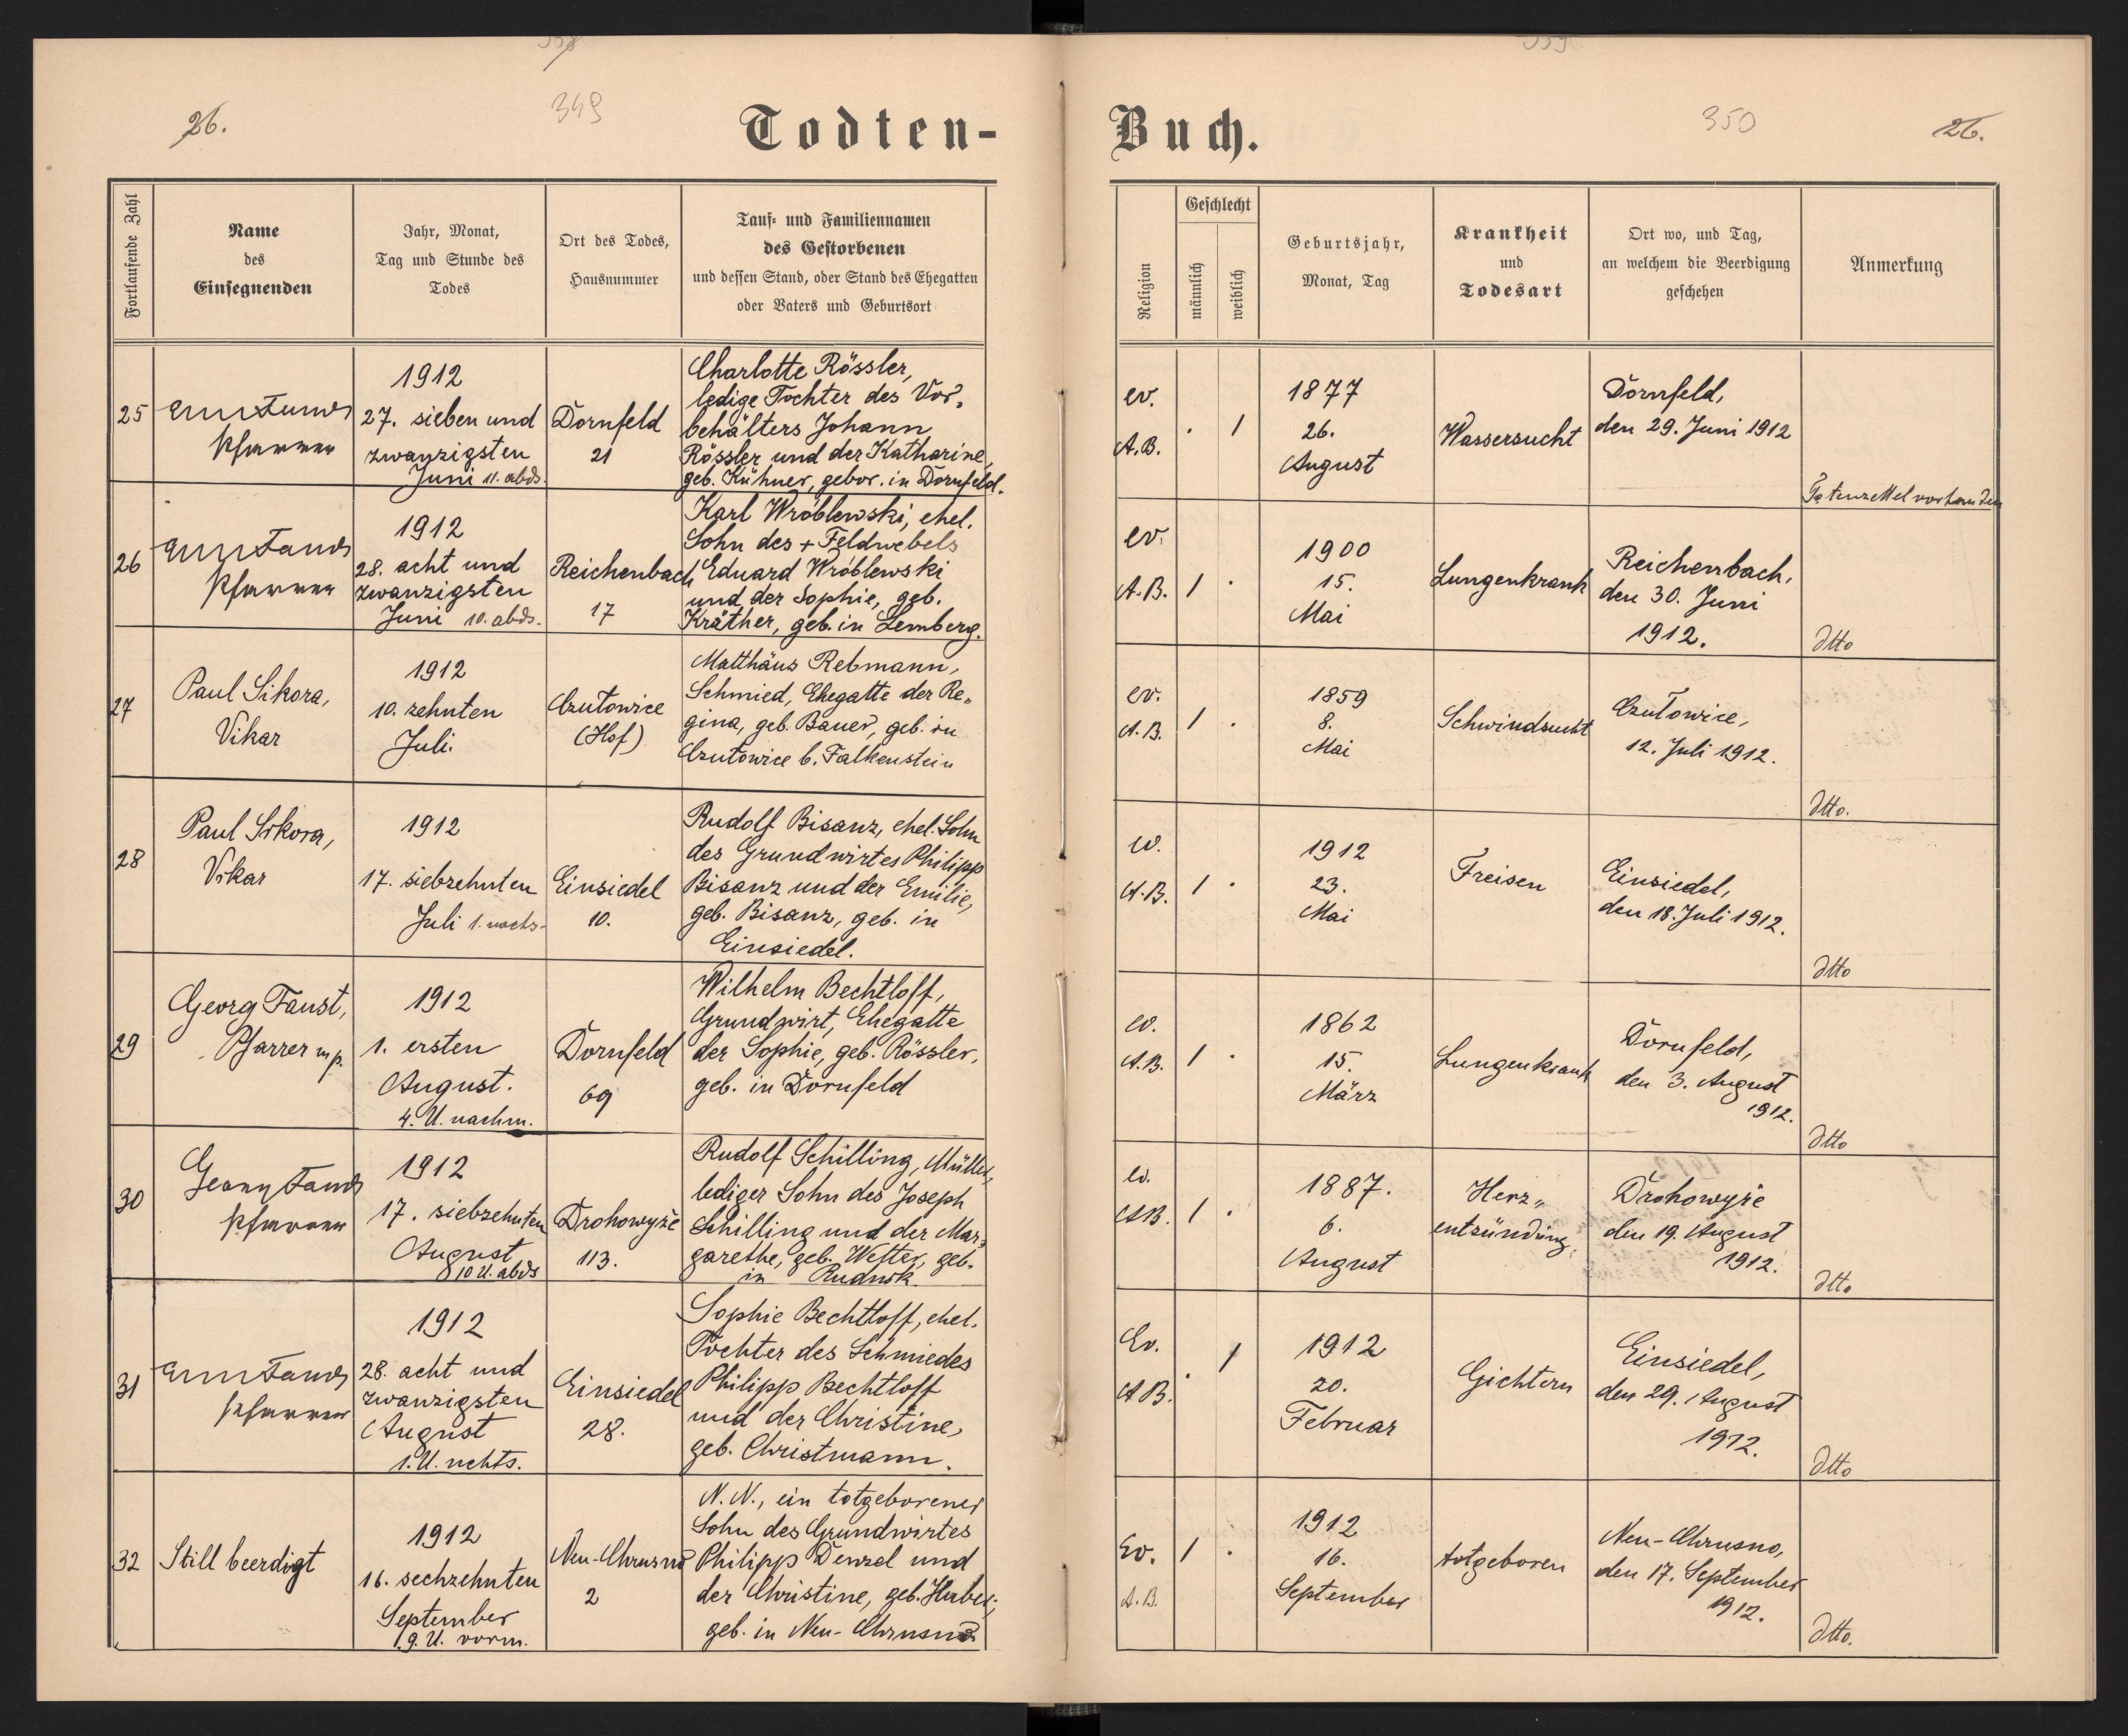 26.
349
Todten-
Fortlaufende Zahl
Name
des
Einsegnenden
Jahr, Monat,
Tag und Stunde des
Todes
Ort des Todes,
Hausnummer
Tauf- und Familiennamen
des Gestorbenen
und dessen Stand, oder Stand des Ehegatten
oder Vaters und Geburtsort
25
Pfarrer
1912
27. sieben und
zwanzigsten
Juni 11. abds.
Dornfeld
21
Charlotte Rössler,
ledige Tochter des Vor-
behälters Johann
Rössler und der Katharine,
geb. Kühner, gebor. in Dornfeld.
26
Pfarrer
1912
28. acht und
zwanzigsten
Juni 10. abds.
Reichenbach
17
Karl Wróblewski, ehel.
Sohn des + Feldwebels
Eduard Wróblewski
und der Sophie, geb.
Kräther, geb. in Lemberg.
27
Paul Sikora,
Vikar
1912
10. zehnten
Juli.
Czutowice
(Hof)
Matthäus Rebmann,
Schmied, Ehegatte der Re-
gina, geb. Bauer, geb. in
Czutowice b. Falkenstein
28
Paul Sikora,
Vikar
1912
17. siebzehnten
Juli 1. nachts.
Einsiedel
10.
Rudolf Bisanz, ehel. Sohn
des Grundwirtes Philipp
Bisanz und der Emilie,
geb. Bisanz, geb. in
Einsiedel.
29
Georg Faust,
Pfarrer mp.
1912
1. ersten
August.
4. U. nachm.
Dornfeld
69
Wilhelm Bechtloff,
Grundwirt, Ehegatte
der Sophie, geb. Rössler,
geb. in Dornfeld
30
Georg Faust
Pfarrer
1912
17. siebzehnten
August
10 U. abds
Drohowyże
113.
Rudolf Schilling, Müller,
lediger Sohn des Joseph
Schilling und der Mar-
garethe, geb. geb.
in Rudnik.
31
Pfarrer
1912
28. acht und
zwanzigsten
August
1. U. nchts.
Einsiedel
28.
Sophie Bechtloff, ehel.
Tochter des Schmiedes
Philipp Bechtloff
und der Christine,
geb. Christmann.
32
Still beerdigt
1912
16. sechzehnten
September
9. U. vorm.
Neu-Chrusno
2
N. N., ein totgeborener
Sohn des Grundwirtes
Philipp Denzel und
der Christine, geb. Huber,
geb. in Neu-Chrusno
350
26.
Buch.
Religion
Geschlecht
männlich
weiblich
Geburtsjahr,
Monat, Tag
Krankheit
und
Todesart
Ort wo, und Tag,
an welchem die Beerdigung
geschehen
Anmerkung
ev.
A.B.
. 1
1877
26.
August
Wassersucht
Dornfeld,
den 29. Juni 1912
Totenzettel vorhanden
ev.
A.B.
1 .
1900
15.
Mai
Lungenkrank
Reichenbach,
den 30. Juni
1912.
dtto
ev.
A.B.
1 .
1859
8.
Mai
Schwindsucht
Czutowice,
12. Juli 1912.
dtto.
ev.
A.B.
1 .
1912
23.
Mai
Freisen
Einsiedel,
den 18. Juli 1912.
dtto
ev.
A.B.
1 .
1862
15.
März
Lungenkrank
Dornfeld,
den 3. August
1912.
dtto
ev.
A.B.
1 .
1887.
6.
August
Herz-
entzündung.
Drohowyże
den 19. August
1912.
dtto
Ev.
A.B.
. 1
1912
20.
Februar
Gichtern
Einsiedel,
den 29. August
1912.
dtto
Ev.
A.B.
1 .
1912
16.
September
totgeboren
Neu-Chrusno,
den 17. September
1912.
dtto.